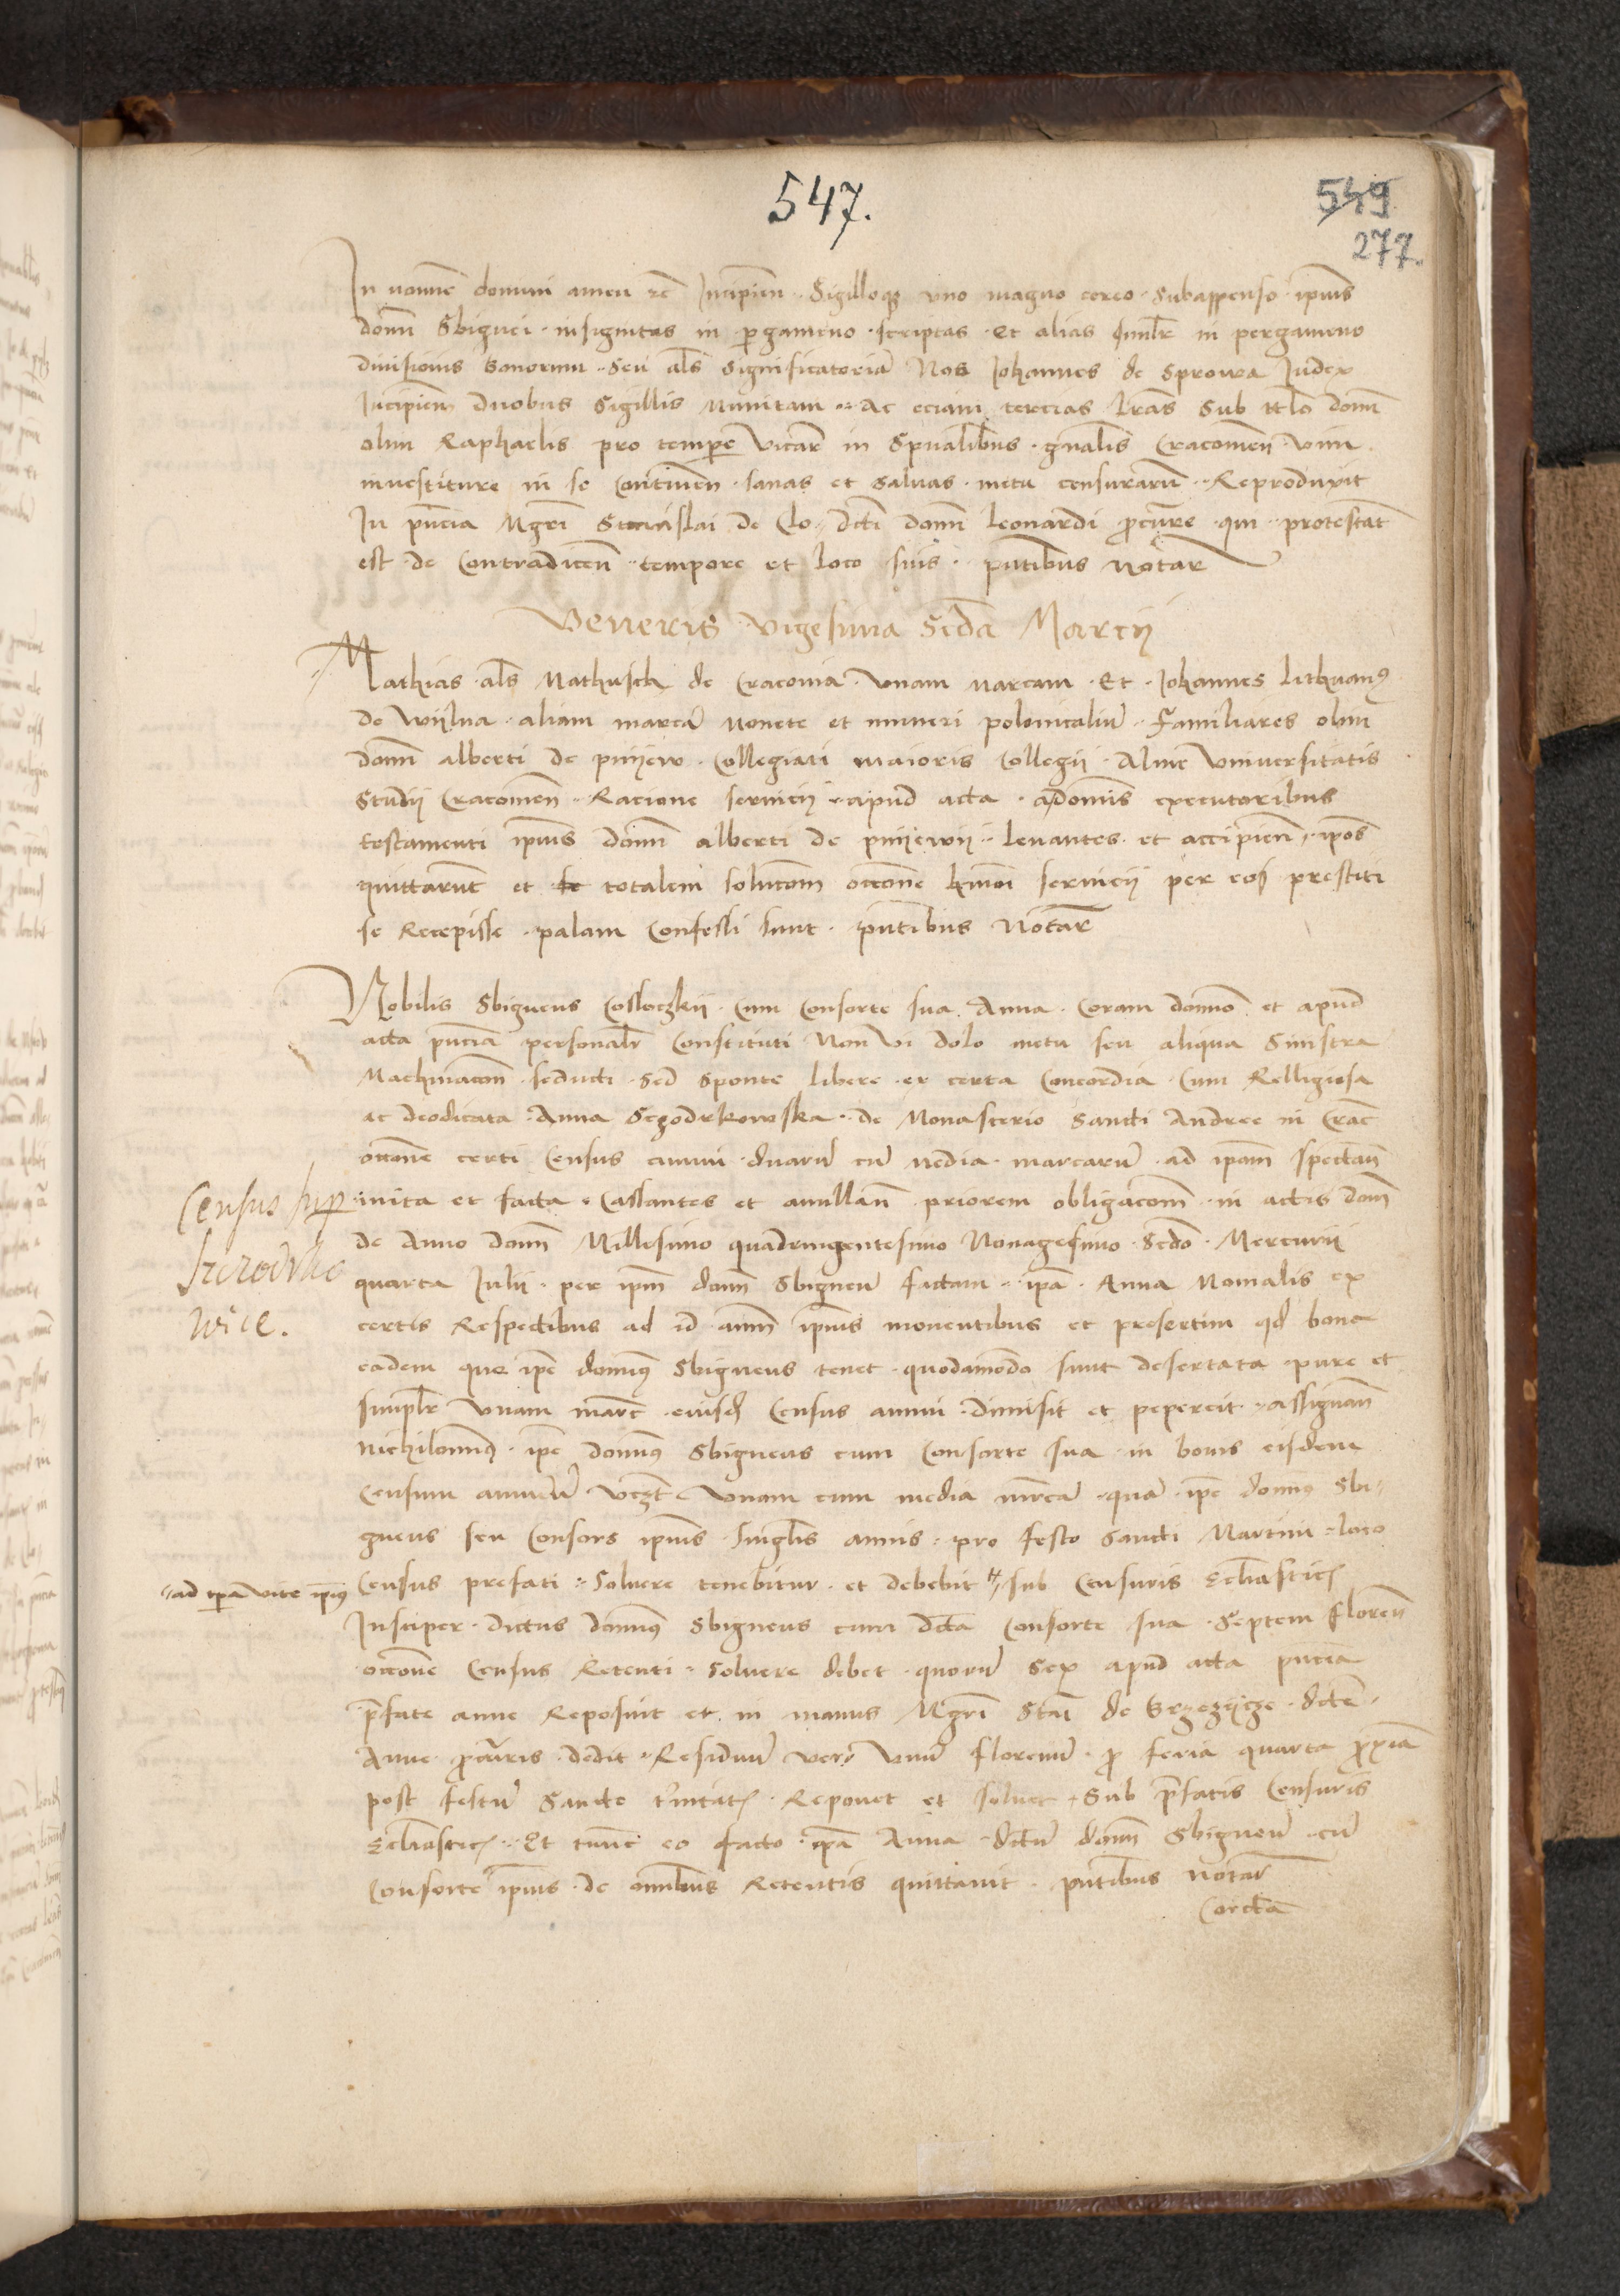 547.
549
277.
In nomine domini amen etc Incipien Sigilloque uno magno cereo Subappenso ipius
domi Sbignei insignitas in pergameno scriptas Et alias similr in pergameno
divisionis bonorum Seu als Significatoria Nos Johannes de Sprowa Judex
Incipien Duobus Sigillis munitam Ac eciam tercias lras Sub ttlo domi
olim Raphaelis pro tempore Vicarii in Spualibus gnalis Cracovien vim
investiture in se Continen sanas et salvas metu censurarum Reproduxit
In pncia Mgri Stanislai de Clo dcti domi Leonardi procure qui protestat
est de Contradicen tempore et loco suis pntibus Notar
Veneris vigesima Scda Marcii
Mathias als Mathusch de Cracovia Unam marcam Et Johannes Lithuanus
de Wijlna aliam marcam monete et numeri polonicalium Familiares olim
domi alberti de pnijew Collegiati maioris Collegii Alme Universitatis
Studij Cracovien Racione servicij apud acta a dominis executoribus
testamenti ipius domi alberti de pnijewij Levantes et accipien ipos
quittarunt et totalem solucom occone hmoi servicij per eos prestiti
se Recepisse palam Confessi sunt pntibus Notar
Nobilis Sbigneus Cosloczkij Cum Consorte sua Anna Coram domino et apud
acta pncia personalr Constituti Non Vi dolo metu seu aliqua Sinistra
Machinacom seducti Sed Sponte libere ex certa Concordia Cum Relligiosa
ac deodicata Anna Sczodrkowska de Monasterio Sancti Andree in Crac
occone certi Census annui duarum cum media marcarum ad ipam spectan
inita et facta Cassantes et anullan priorem obligacom in actis domi
de Anno domi Millesimo quadringentesimo Nonagesimo Scdo Mercurij
quarta Julii per ipm dom Sbigneum factam ipa Anna Monialis ex
certis Respectibus ad id anim ipius moventibus et presertim qd bona
eadem que ipe dominus Sbigneus tenet quodammodo sunt desertata pure et
simplr Unam marc eiusdem Census annui dimisit et pepercit Assignan
Nichilominus ipe dominus Sbigneus cum Consorte sua in bonis eisdem
Censum annuum Vczt Unam cum media mrcam quam ipe dominus Sbi-
gneus seu Consors ipius singlis annis pro festo Sancti Martini loco
Census prefati Solvere tenebitur et debebit sub Censuris Ecliasticis
Insuper dictus dominus Sbigneus cum dicta Consorte sua Septem floren
occone Census Retenti Solvere debet quorum Sex apud acta pncia
prefate anne Reposuit et in manus Mgri Stai de Grzezijcze dicte
Anne procuris dedit Residuum vero Unum florenum pro feria quarta proxima
post festum Sancte trinitatis Reponet et solvet Sub prefatis Censuris
Ecliasticis Et tunc eo facto ipa Anna dictum dom Sbigneum cum
Consorte ipius de omnibus Retentis quittavit pntibus Notar
Census sup
Sczodrko
wice.
ad tpra vite ipius